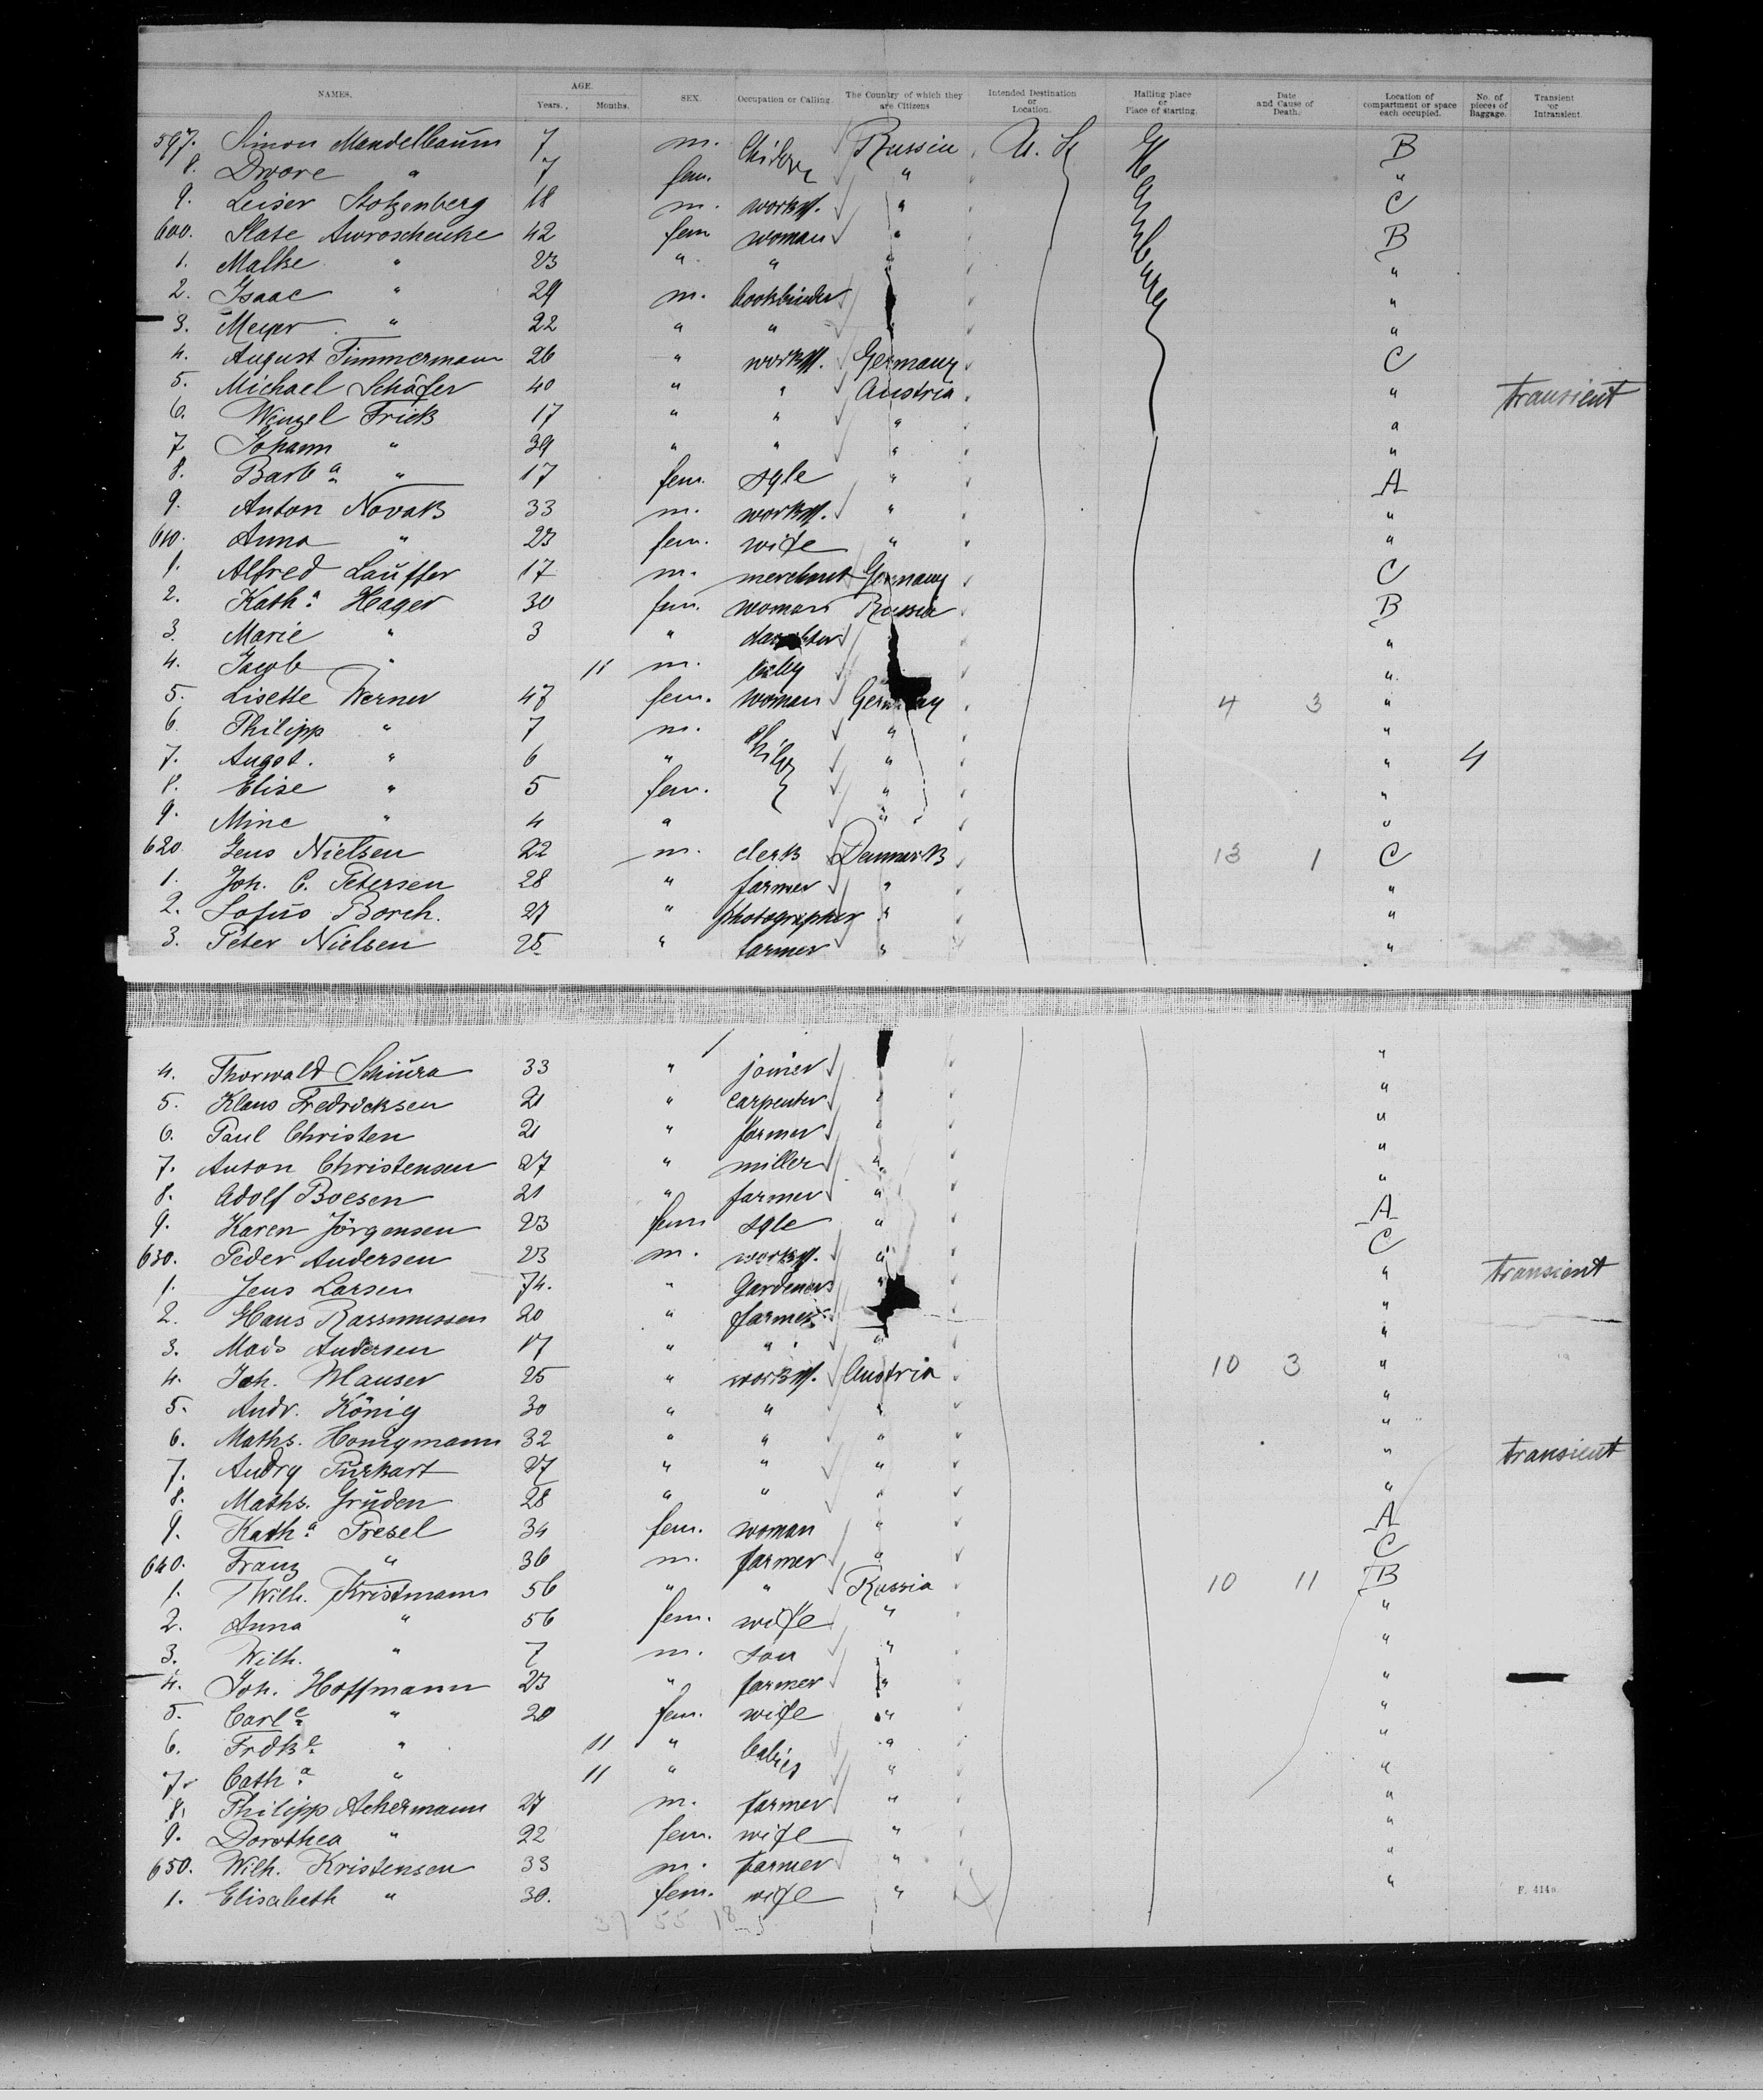 NAMES. AGE. Years. Months. SEX. Occupation or Calling. The Country of which they are Citizens. Intended Destination or Location. Halling place or Place of starting. Date and Cause of Death. Location of compartment or space each occupied. No. of pieces of Baggage. Transient or Intransient.
597. Simon Mandelbaum 7 m. Russia U. S. B
8. Dwore " 7 fem. " "
9. Leiser Stolzenberg 18 m. workm. " C
600. Slate Awroscheuke 42 fem woman " B
1. Malke " 23 " " " "
2. Isaac " 29 m. bookbinder "
3. Meyer " 22 " " "
4. August Timmermann 26 " workm. Germany C
5. Michael Schäfer 40 " " Austria " transient
6. Wenzel Frick 17 " " " "
7. Johann " 39 " " " "
8. Barba " 17 fem. sgle " A
9. Anton Novak 33 m. workm. " "
610. Anna " 23 fem. wife " "
1. Alfred Lauffer 17 m. merchant Germany C
2. Katha Hager 30 fem. woman Russia B
3. Marie " 3 " daughter "
4. Jacob " 11 m. baby "
5. Lisette Werner 47 fem. woman Germany 4 3 "
6. Philipp " 7 m. " "
7. Augst. " 6 " " " 4
8. Elise " 5 fem. " "
9. Mine " 4 " " "
620. Jens Nielsen 22 m. clerk Denmark 13 1 C
1. Joh. C. Petersen 28 " farmer " "
2. Sofus Borch. 27 " photographer " "
3. Peter Nielsen 25 " farmer " "
4. Thorwald Schiura 33 " joiner "
5. Klaus Fredricksen 21 " carpenter " "
6. Paul Christen 21 " farmer " "
7. Anton Christensen 27 " miller " "
8. Adolf Boesen 21 " farmer " "
9. Karen Jörgensen 23 fem sgle " A
630. Peder Andersen 23 m. workm. " C
1. Jens Larsen 74. " Gardener " " transient
2. Hans Rassmussen 20 " farmer "
3. Mads Andersen 17 " " " "
4. Joh. Mauser 25 " workm. Austria 10 3 "
5. Andr. König 30 " " " "
6. Maths. Honigmann 32 " " " "
7. Andry Purkart 27 " " " " transient
8. Maths. Gruden 28 " " " "
9. Katha Presel 34 fem. woman " A
640. Franz " 36 m. farmer " C
1. Wilh. Kristmann 56 " " Russia 10 11 B
2. Anna " 56 fem. wife " "
3. Wilh. " 7 m. son " "
4. Joh. Hoffmann 23 " farmer " "
5. Carle " 20 fem. wife " "
6. Frdke " 11 " babies " "
7. Catha " 11 " " "
8. Philipp Achermann 27 m. farmer " "
9. Dorothea " 22 fem. wife " "
650. Wilh. Kristensen 33 m. farmer " "
1. Elisabeth " 30. fem. wife " "
F. 414a